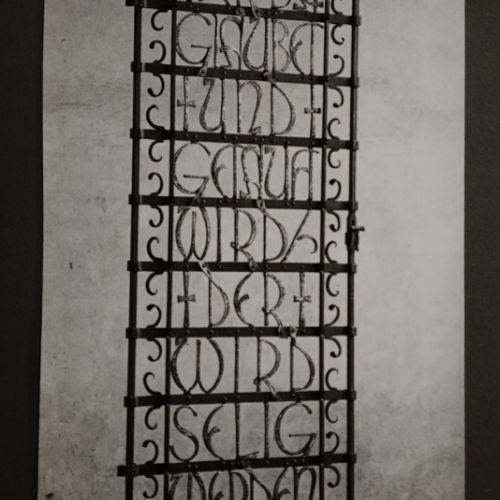 GLAUBET
UND
GETAUFT
WIRD
DER
WIRD
SELIG
WERDEN